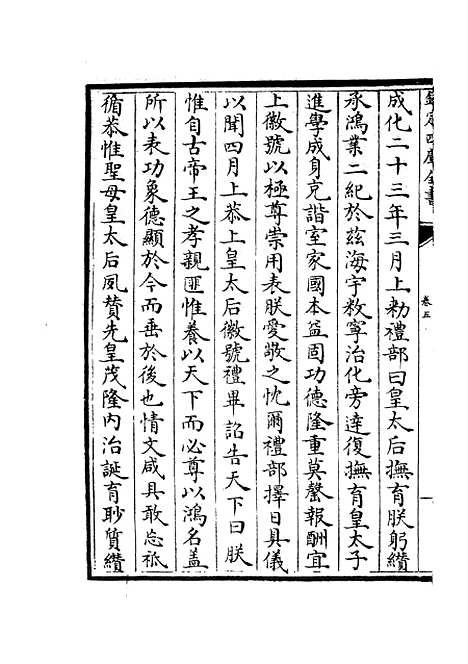 欽定四庫全書
卷五
成化二十三年三月上勑禮部曰皇太后撫育朕躬纘
承鴻業二紀於兹海宇敉寧治化旁達復撫育皇太子
進學成身克諧室家國本益固功德隆重莫罄報酬宜
上徽號以極尊崇用表朕愛敬之忱爾禮部擇日具儀
以聞四月上恭上皇太后徽號禮畢詔告天下曰朕
惟自古帝王之孝親匪惟養以天下而必尊以鴻名盖
所以表功象德顯於今而垂於後也情文咸具敢忘祗
循恭惟聖母皇太后夙賛先皇茂隆内治誕育眇質纘